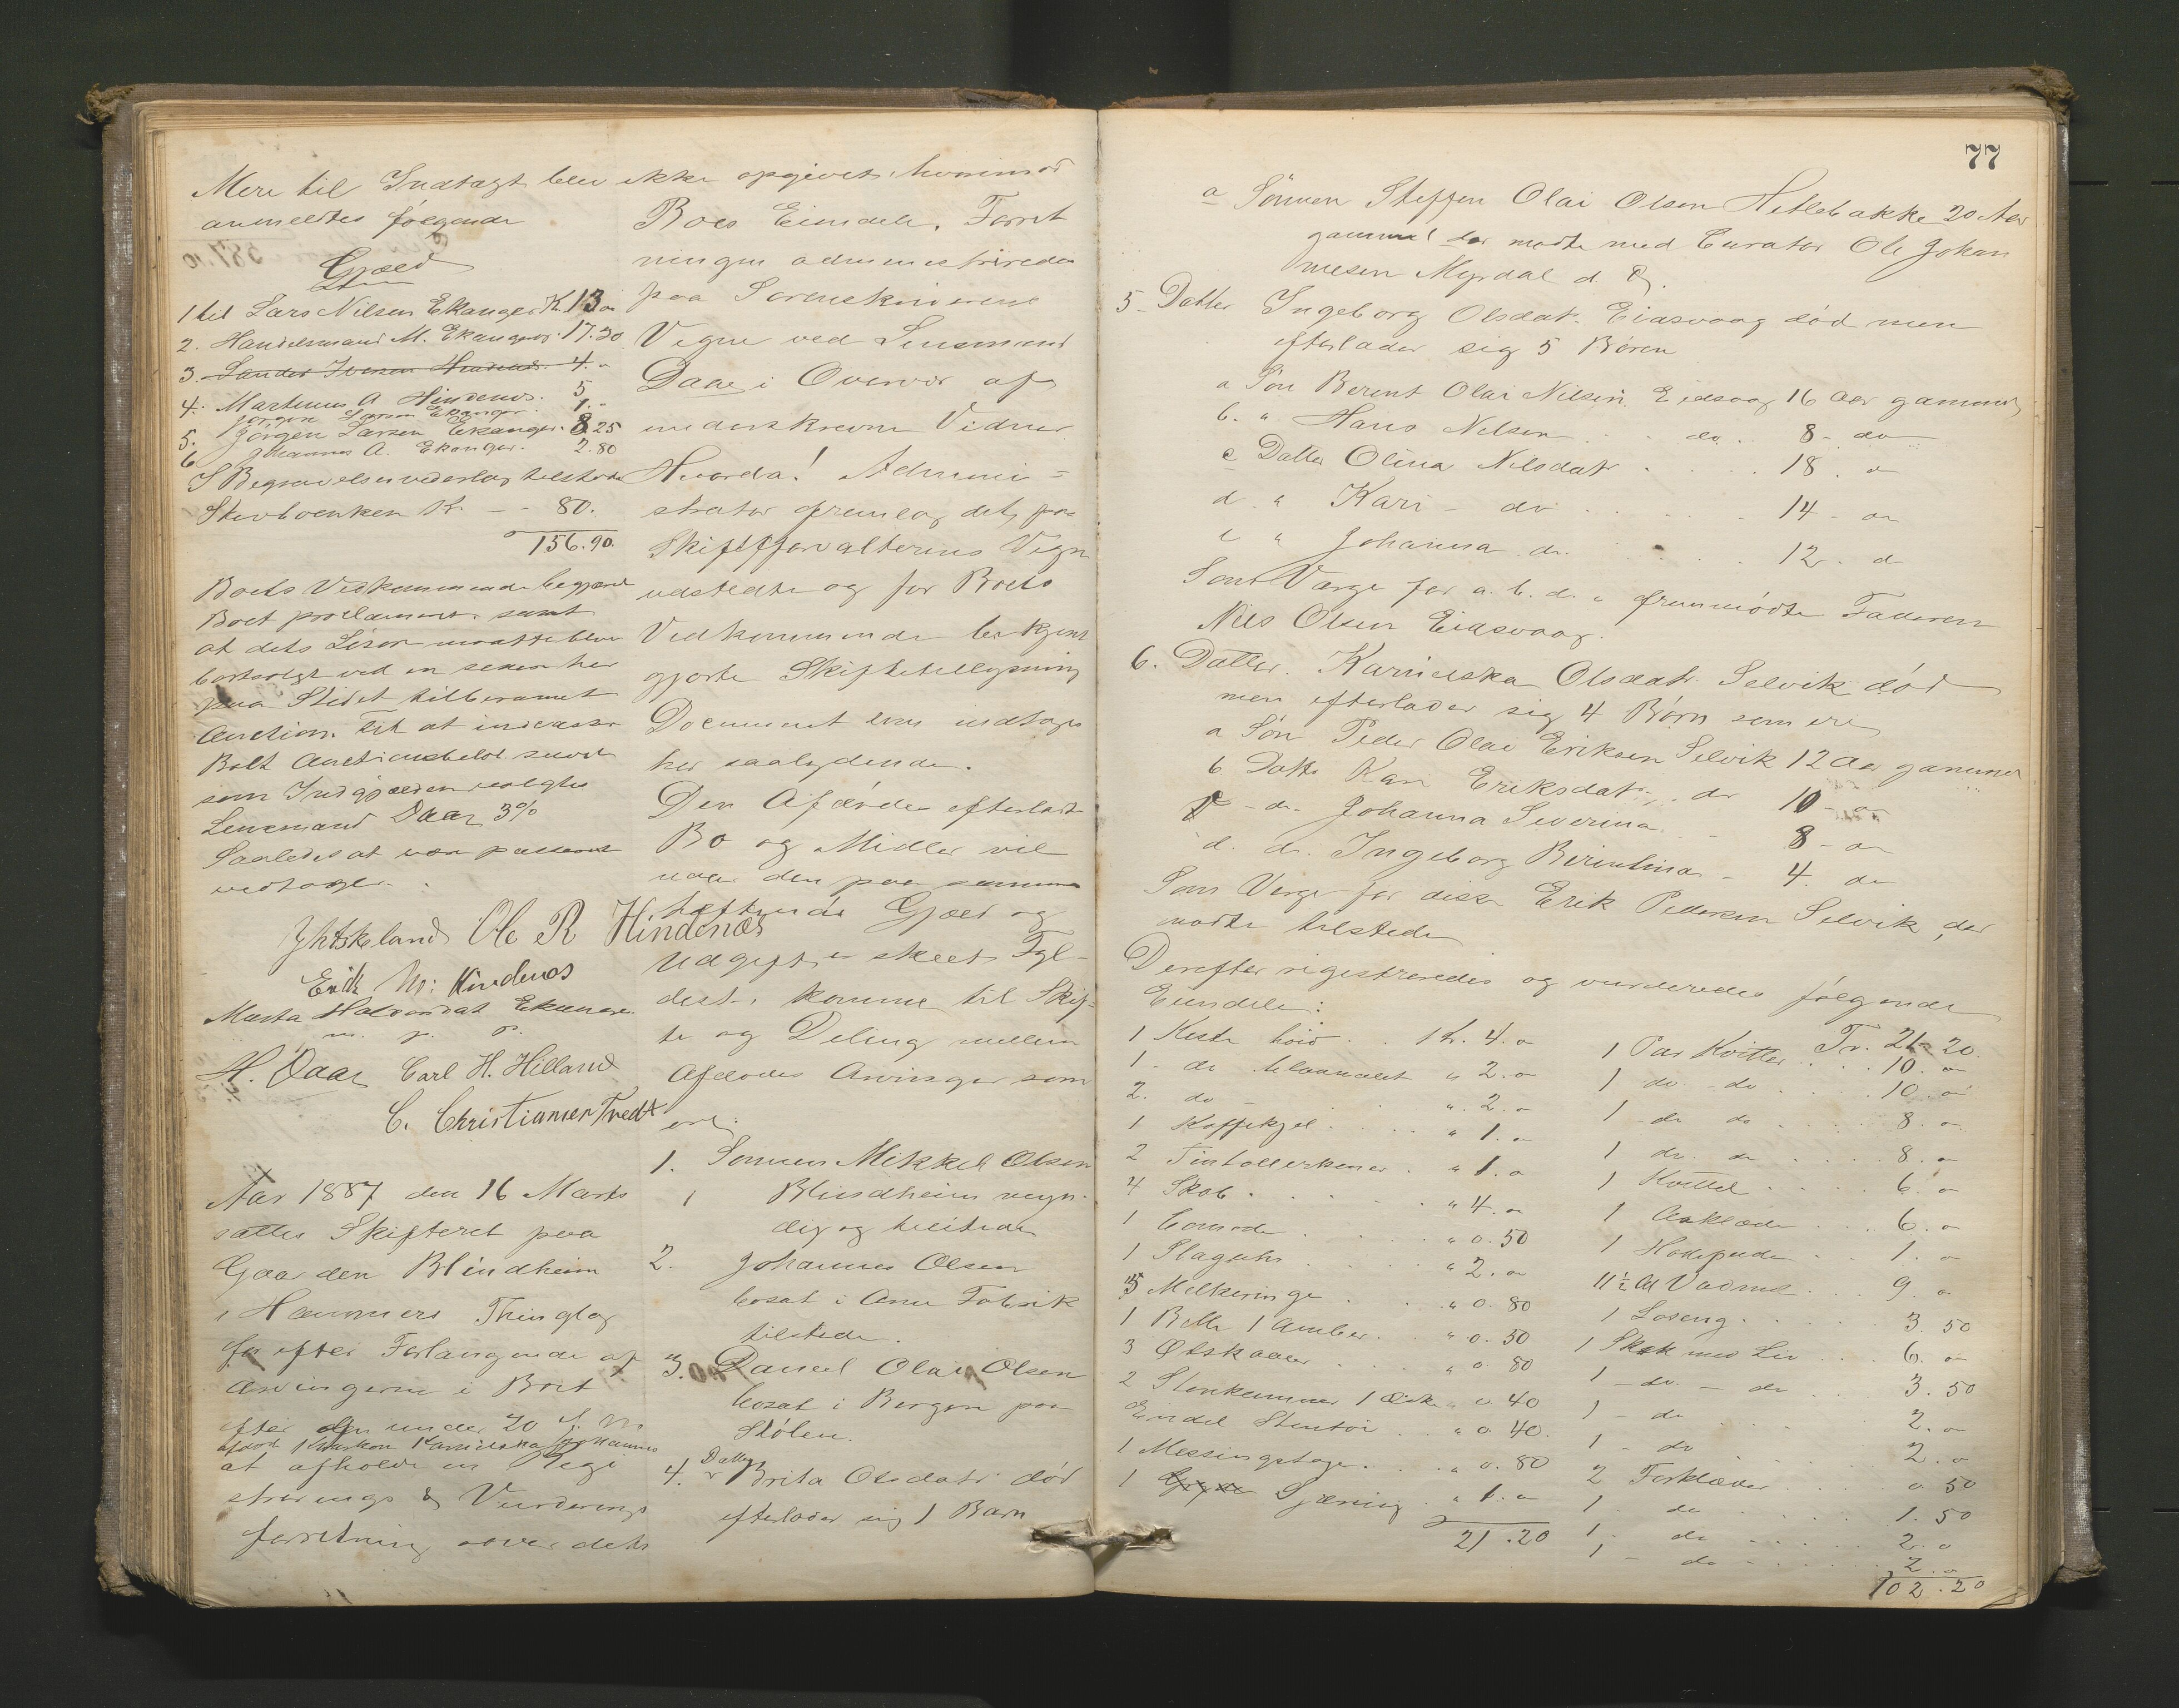 Mere til Indtægt blev ikke opgivet, hvorimod
anmeldtes følgende
Gjæld
1 til Lars Nilsen Ekanger Kr. 13 "
2. Handelsmand M. Ekanger 17.30
3. Sander Iversen Hindenes 4. "
4. Martinus A Hindenes. 5
Jørgen Larsen Ekanger 1. -
5. Jørgen Larsen Ekanger. 8.25
6 Johannes A. Ekanger. 2.80
I Begravelsesvederlag tilstodes
Stervboenken Kr. - - 80.
156.90.
Boets Vedkommende begjærede
Boet proclameret samt
at dets Løsøre maatte blive
bortsolgt ved en senere her
paa Stedet tilberamet
Auction. Til at indcassere
Boets Auctionsbeløb saavel
som Indgjælden valgtes
Lensmand Daae 3%
Saaledes at være passeret
vedtages.
Ole R Hindenæs
Erik M: Hindenes
Marta Halvorsdat Ekanger
m. p. P.
H. Daae Carl H. Hilland
C. Christiansen Tvedt
Aar 1887 den 16 Marts
sattes Skifteret paa
Gaarden Blindheim
i Hammers Thinglag
for efter Forlangende af
Arvingerne i Boet
efter den under 20 f. M.
afdøde Kvarkone Karnielska Johannes
at afholde en Regi
strerings & Vurderings
forretning over dets
Boes Eiendele. Forret
ningen administreredes
paa Sorenskriverens
Vegne ved Lensmand
Daae i Overvær af
underskrevne Vidner
Hvorda! Admini=
strator fremlag det paa
Skifteforvalterens Vegne
udstedte og for Boets
Vedkommende bekjent
gjorte Skiftetillysning
Document som indtages
her saalydende.
Den Afdødes efterladte
Bo og Midler vil
naar den paa samme
heftende Gjæld og
Udgift er skeet Fyl-
dest, komme til Skif=
te og Deling mellem
Afdødes Arvinger som
ere:
1. Sønnen Mikkel Olsen
Blindheim myn-
dig og tilstede
2. Johannes Olsen
bosat i Arne Fabrik
tilstede.
3. Daniel Olai Olsen
bosat i Bergen paa
Stølen.
4. Datter Brita Olsdatr død
efterlader sig 1 Barn
77
a Sønnen Steffen Olai Olsen Hetlebakke 20 Aar
gammel der mødte med Curator Ole Johan
nesen Myrdal d &.
5- Datter Ingeborg Olsdatr. Eidsvaag død men
efterlader sig 5 Børn
a Søn Berent Olai Nilsen Eidsvaag 16 Aar gammel
b. " Hans Nilsen . . do . . 8 - do
c Datter Olina Nilsdatr . . . . 18 . "
d. " Kari - do . . . . 14 - "
e " Johanna do. . . . . 12. d
Som Værge for a. b. d. e fremmødte Faderen
Nils Olsen Eidsvaag.
6. Datter. Karnielska Olsdatr. Selvik død
men efterlader sig 4 Børn som ere
a Søn Peder Olai Eriksen Selvik 12 Aar gammel
b Datter Kari Eriksdatr. do 10 - "
c - do. Johanna Severina - 8 - "
d. do. Ingeborg Berentina - 4. do
Som Værge for disse Erik Pedersen Selvik, der
mødte tilstede
Derefter registreredes og vurderedes følgende
Eiendele:
1 Kiste hvid . . Kr. 4. "
1 - do blaamalet " 2. "
2. do - . . " 2. "
1 Kaffekjel . . . " 1. "
2 Tintallerkener . " 1. "
4 Skab . . . . " 4. "
1 Comode . . . . " 0. 50
1 Slaguhr . . . . " 2. "
5 Melkeringe . . . " 0. 80
1 Bøtte 1 Amber . . " 0. 50
3 Ølskaaler . . . " 0. 80
2 Stenkummer 1 Æske " 0 40
Endel Stentøi . . " 0. 40.
1 Messingstage . . . " 0. 80
1 Sjæring . " 1. "
21.20
Tr. 21- 20.
1 Par Kvitler . . 10. "
1 do - do . . . . 10. "
1 - do do . . . . 8. "
1 do. do . . . . 8. "
1 Kvittel . . . . 6. "
1 Aaklæde . . . 6. "
1 Hodepude . . . 1. "
11 1/2 Al Vadmel . . . 9. "
1 Løseng . . . . 3. 50
1 Skjørt med Liv . . . 6. "
1 - do - do . . 3. 50
1 - do . . . . 2. "
1 - do . . . . 2. "
2 Forklæder . . . . 0 50
1 do . . . . 1. 50
1 - do . . . . 2. "
1 - do . . . . 2. "
102.20